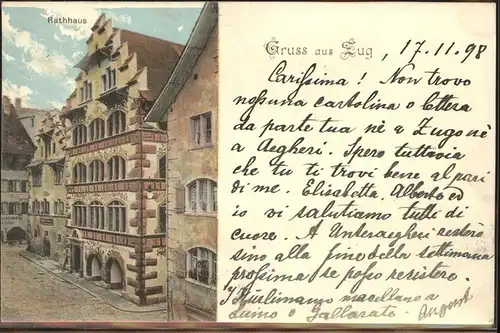 Rathhaus
Gruss aus Zug, 17.11.98
Carissima! Non trovo
nessuna cartolina o lettera
da parte tua nè a Zugo nè
a Aegheri. Spero tuttavia
che tu ti trovi bene al pari
di me. Elisabetta, Alberto ed
io vi salutiamo tutti di
cuore. A Unteraegheri resterò
sino alla fine della settimana
prossima se posso resistere.
macellano a
o Gallarate. August